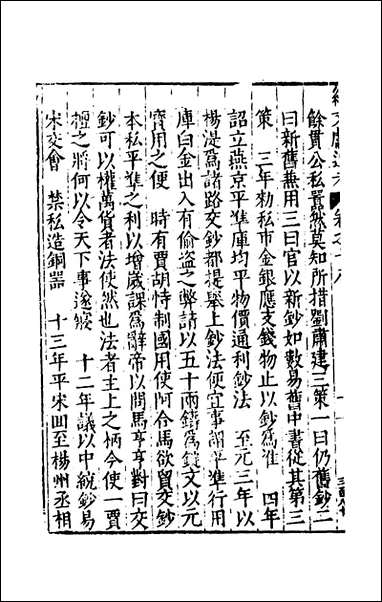 文獻通考 卷之十八
餘貫公私囂然莫知所措劉肅建三策一曰仍舊鈔二
曰新舊兼用三曰官以新鈔如數易舊中書從其第三
策 三年勑私市金銀應支錢物止以鈔爲准 四年
詔立燕京平準庫均平物價通利鈔法 至元三年以
楊湜爲諸路交鈔都提舉上鈔法便宜事謂平準行用
庫白金出入有偷盗之弊請以五十兩鑄爲錠文以元
寳用之便 時有賈胡恃制國用使阿合馬欲貿交鈔
本私平準之利以增歲課爲辭帝以問馬亨亨對曰交
鈔可以權萬貨者法使然也法者主上之柄今使一賈
擅之將何以令天下事遂寢 十二年議以中統鈔易
宋交會 禁私造銅器 十三年平宋囬至楊州丞相